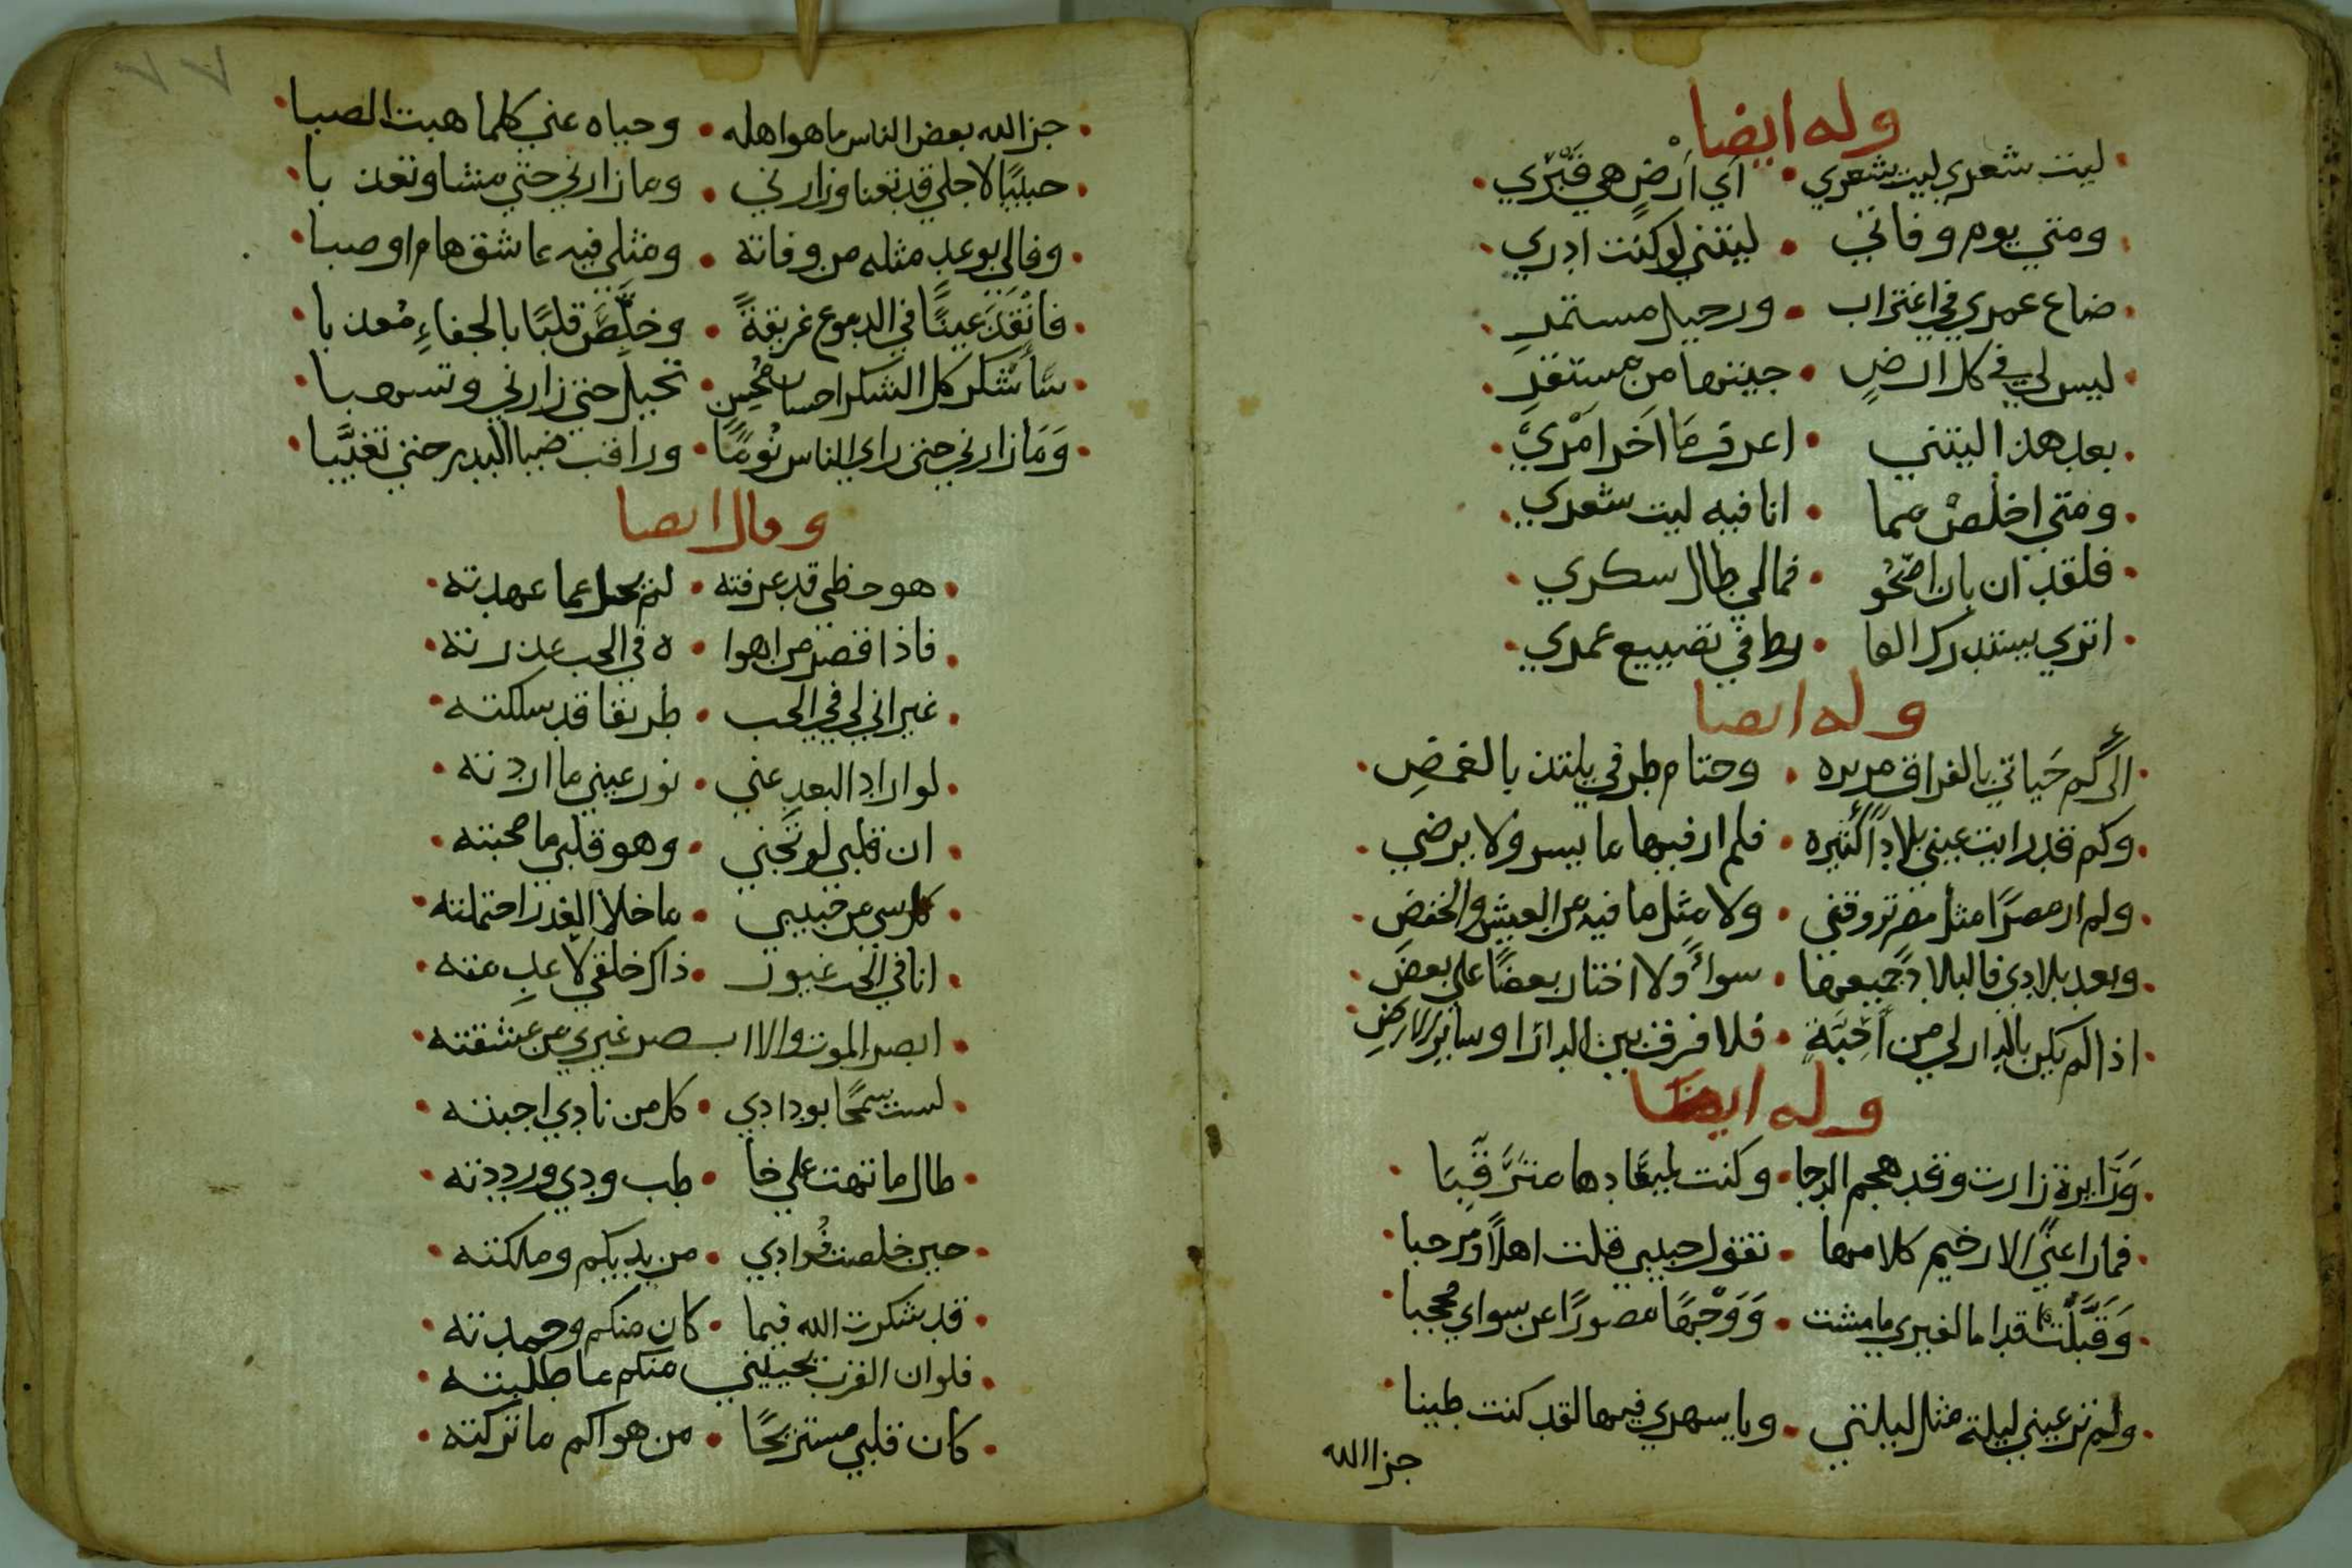 وله ايضا
ليت شعري ليت شعري • اي ارض هي قبري
ومتي يوم وفاتي • ليتني لو كنت ادري
ضاع عمري في اغتراب • ورحيل مستمر
ليس لي في كل ارض • جيتها من مستقر
بعد هذا ليتني • اعرف ما اخر امري
ومتي اخلص مما • انا فيه ليت شعري
فلقد ان بان اصحو • فمالي طال سكري
اتري يستدرك الفا • رط في تضييع عمري
وله ايضا
الى كم حياتي بالفراق مريره • وحتام طرفي يلتذ بالغمض
وكم قد رايت عيني بلادا كثيره • فلم ار فيها ما يسر ولا يرضي
ولم ار مصرا مثل مصر تروقني • ولا مثل ما فيه من العيش والخفض
وبعد بلادي فالبلاد جميعها • سواء ولا اختار بعضا علي بعض
اذا لم يكن بالدار لي من احبة • فلا فرق بين الدار او ساير الارض
وله ايضا
وزايرة زارت وقد هجم الدجا • وكنت لميعادها مترقبا
فما راعني الا رخيم كلامها • تقول حبيبي قلت اهلا ومرحبا
وقبلت اقداما لغيري ما مشت • ووجها مصورا عن سواي محجبا
ولم تر عيني ليلة مثل ليلتي • ويا سهري فيها لقد كنت طيبا
جزا الله
٧٧
جزا الله بعض الناس ما هو اهله • وحياه عني كلما هبت الصبا
حبيبا لاجلي قد تعنا وزارني • وما زارني حتي مشا وتعذبا
وفالي بوعد مثله من وفاته • ومثلي فيه عاشق هام او صبا
فانقذ عينا في الدموع غريقة • وخلص قلبا بالجفاء معذبا
ساشكر كل الشكر احسان محسن • تحيل حتي زارني وتسهبا
وما زارني حتي راي الناس نوما • وراقب ضيا البدر حتي تغيبا
وقال ايضا
هو حظي قد عرفته • لم يحل عما عهدته
فاذا قصر من اهوا • ه في الحب عذرته
غير اني لي في الحب • طريقا قد سلكته
لو اراد البعد عني • نور عيني ما اردته
ان قلبي لو تجني • وهو قلبي ما صحبته
كل شي من حبيبي • ما خلا الغدر احتملته
انا في الحب غيور • ذاك خلقي لا عدمته
ابصر الموت والا ابصر غيري من عشقته
لست سمحا بودادي • كل من نادي اجبته
طال ما تهت علي خا • طب ودي ورددته
حين خلصت فوادي • من يديكم وملكته
قد شكرت الله فيما • كان منكم وحمدته
فلو ان القرب يحييني منكم ما طلبته
كان قلبي مستريحا • من هواكم ما تركته